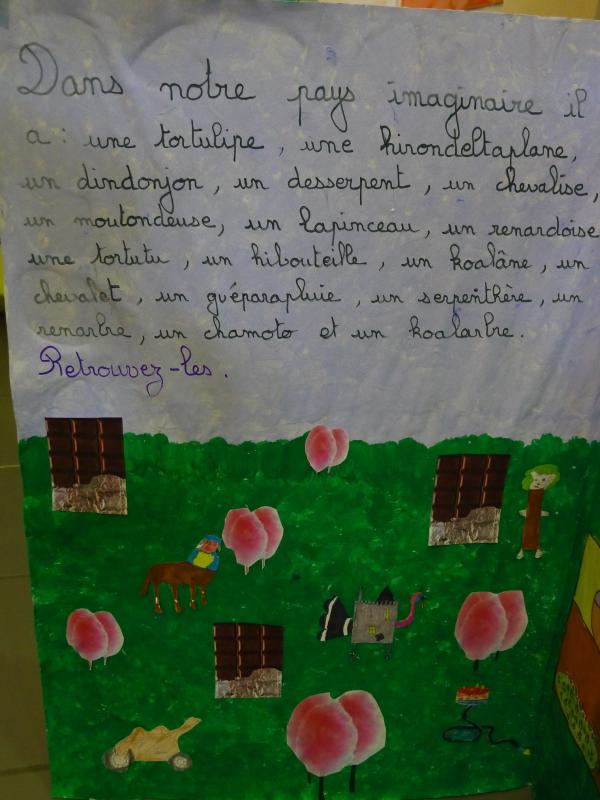 Dans notre pays imaginaire il
a : une tortulipe, une hirondeltaplane,
un dindonjon, un desserpent, un chevalise,
un moutondeuse, un lapinceau, un renardoise
une tortutu, un hibouteille, un koalâne, un
chevalet, un guéparapluie, un serpenthère, un
renarbre, un chamoto et un koalarbre.
Retrouvez-les.